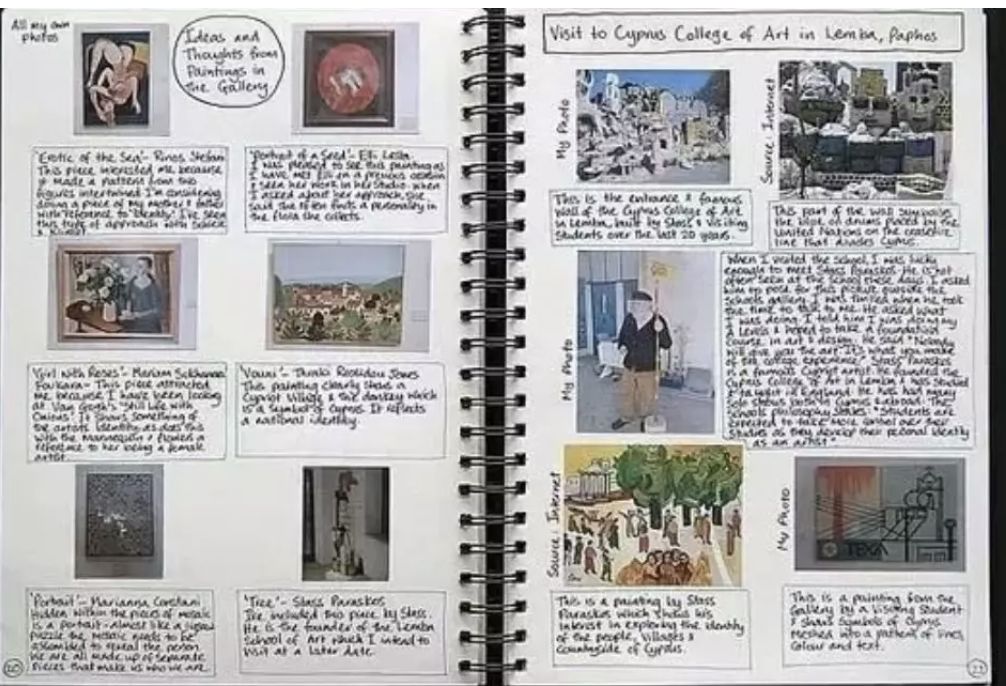 All my own
photos
Ideas and
Thoughts from
Paintings in
the Gallery
'Erotic of the Sea' - Rinos Stefani
This piece interested me because
it made a pattern from two
figures intertwined. I'm considering
doing a piece of my mother & father
with reference to 'Identity'. I've seen
this type of approach with
'Portrait of a Seed' - Elli Lestas
I was pleased to see this painting as
I have met Elli on a previous occasion
& seen her work in her studio. When
I asked about her approach, she
said she often finds a personality in
the flora she collects.
'Girl with Roses' -
This piece attracted
me because I have been looking
at Van Gogh's "Still Life with
Onions". It shows something of
the artists identity as does this
with the Mannequin & flowers a
reference to her being a female
artist.
'Vouni' - Jones
This painting clearly shows a
Cypriot Village & the donkey which
is a symbol of Cyprus. It reflects
a national identity.
'Portrait' - Marianna Constanti
Hidden within the pieces of mosaic
is a portrait - almost like a jigsaw
puzzle the mosaic needs to be
assembled to reveal the person.
We are all made up of separate
pieces that make us who we are.
'Tree' - Stass Paraskos
I've included this piece by Stass.
He is the founder of the Lemba
School of Art which I intend to
visit at a later date.
Visit to Cyprus College of Art in Lemba, Paphos
My Photo
Source: Internet
This is the entrance & famous
Wall of the Cyprus College of Art
in Lemba, built by Stass & Visiting
Students over the last 20 years.
This part of the wall symbolises
the block oil drums placed by the
United Nations on the ceasefire
line that divides Cyprus.
My Photo
When I visited the school, I was lucky
enough to meet Stass Paraskos. He is not
often seen at the school these days. I asked
him to pose for this picture outside the
schools gallery. I was thrilled when he took
the time to talk to me. He asked what
I was doing. I told him I was doing my
A Levels & hoped to take a foundation
Course in art & design. He said "Nobody
will give you the art. It's what you make
of the college experience". Stass Paraskos
is a famous Cypriot Artist. He founded the
Cyprus College of Art in Lemba & has studied
& taught in England. He has had many
solo shows both in Cyprus & abroad. The
Schools philosophy states: "Students are
expected to take more control over their
Studies as they develop their personal identity
as an artist"
Source: Internet
My Photo
TEXA
This is a painting by Stass
Paraskos which shows his
interest in exploring the identity
of the people, villages &
countryside of Cyprus.
This is a painting from the
Gallery by a visiting student
& shows symbols of Cyprus
Meshed into a pattern of lines,
colour and text.